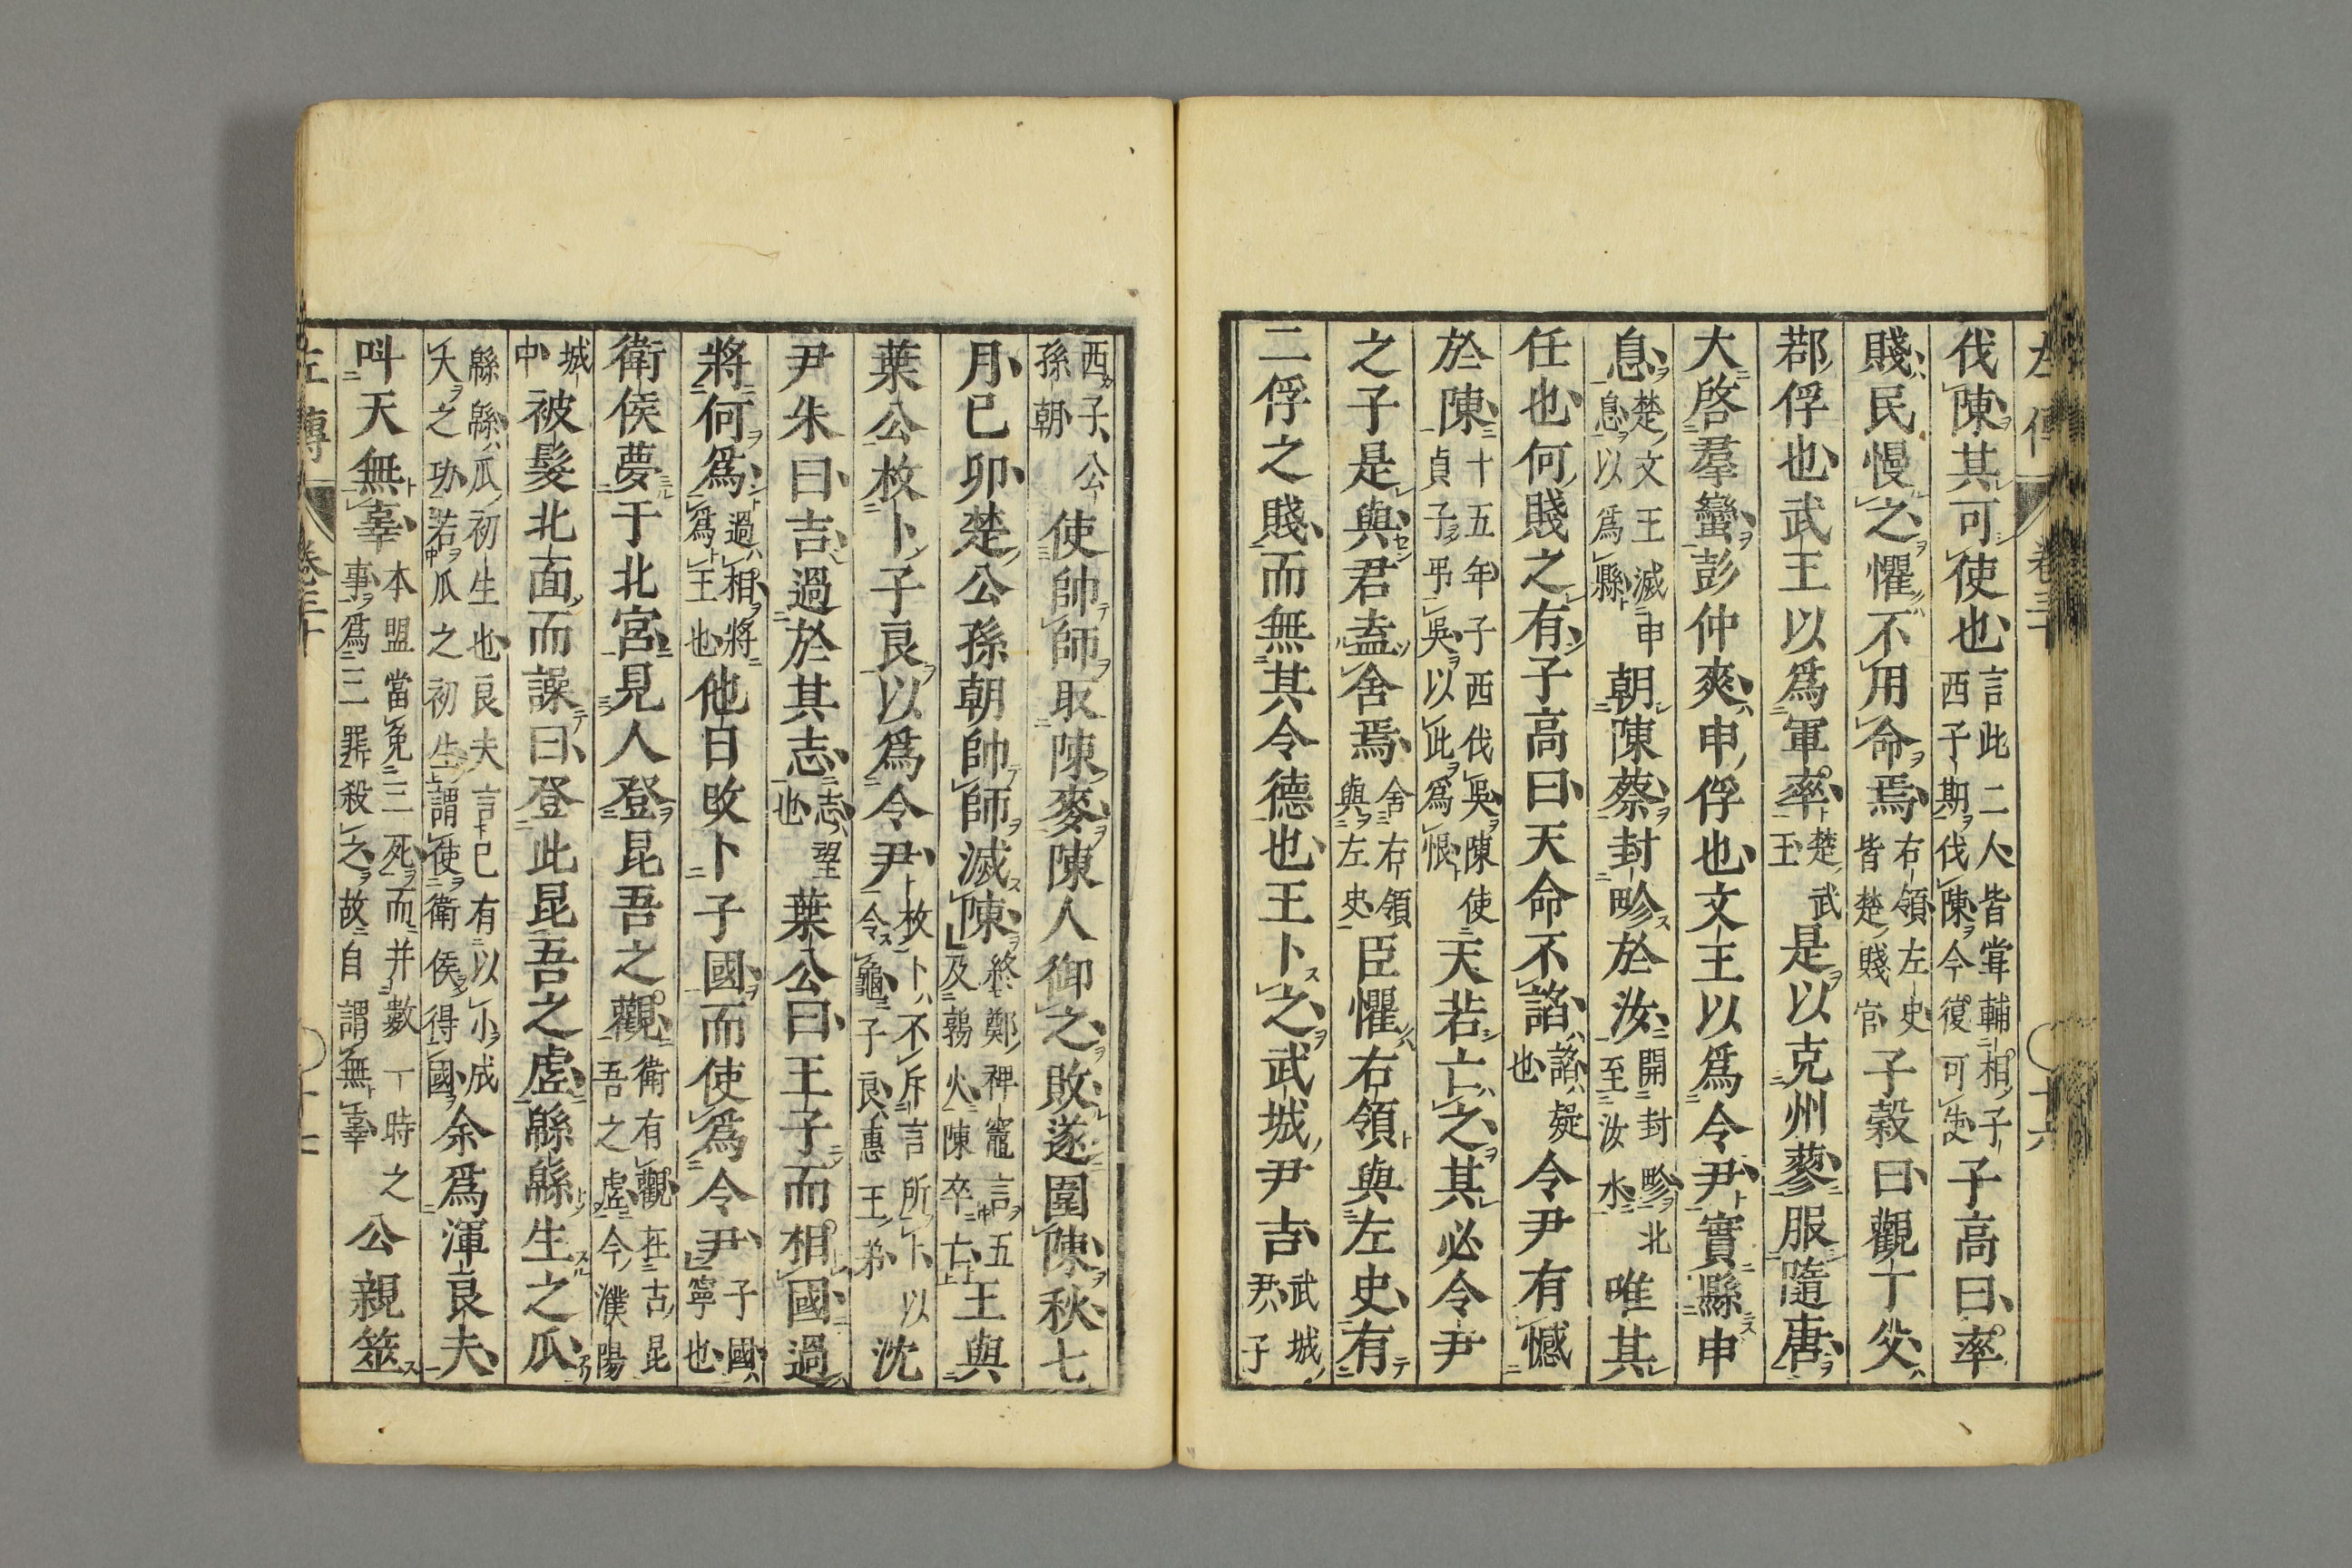 左傳 卷三十 〇十六
伐陳其可使也言此二人皆嘗輔相子西子期伐陳今復可使子高曰率
賤民慢之懼不用命焉右領左史皆楚賤官子穀曰觀丁父
鄀俘也武王以爲軍率楚武王是以克州蓼服隨唐
大啓羣蠻彭仲爽申俘也文王以爲令尹實縣申
息楚文王滅申息以爲縣朝陳蔡封畛於汝開封畛北至汝水唯其
任也何賤之有子高曰天命不謟謟疑也令尹有憾
於陳十五年子西伐吳陳使貞子弔吳以此爲恨天若亡之其必令尹
之子是與君盍舍焉舍右領與左史臣懼右領與左史有
二俘之賤而無其令德也王卜之武城尹吉武城尹子
西子公孫朝使帥師取陳麥陳人御之敗遂圍陳秋七
月已卯楚公孫朝帥師滅陳終鄭裨竈言五及鶉火陳卒亡王與
葉公枚卜子良以爲令尹枚卜不斥言所卜以令龜子良惠王弟沈
尹朱曰吉過於其志志望也葉公曰王子而相國過
將何爲過相將爲王也他日改卜子國而使爲令尹子國寧也
衛侯夢于北宮見人登昆吾之觀衛有觀在古昆吾之虛今濮陽
城中被髮北面而譟曰登此昆吾之虛緜緜生之瓜
緜緜瓜初生也良夫言已有以小成大之功若瓜之初生謂使衛侯得國余爲渾良夫
叫天無辜本盟當免三死而并數一時之事爲三罪殺之故自謂無辜公親筮
左傳 卷三十 〇十七